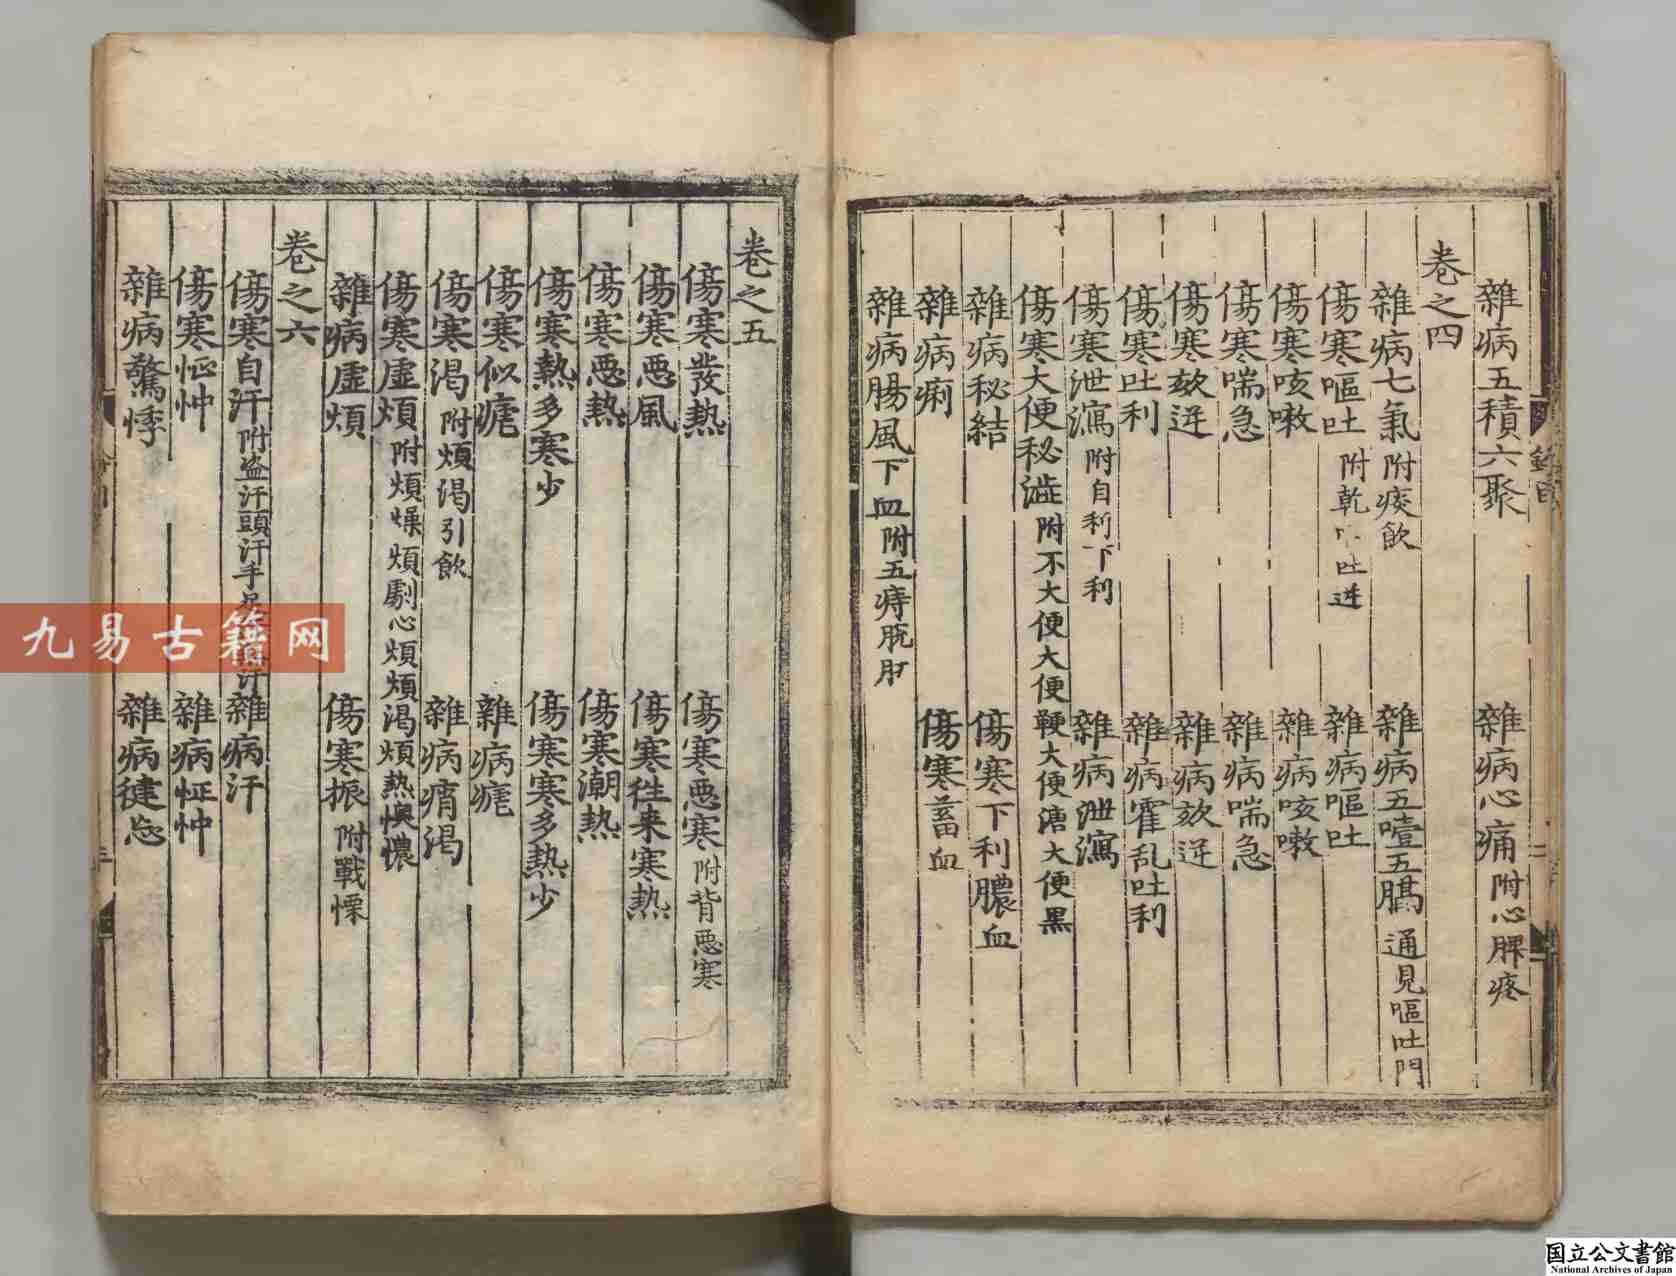 雜病五積六聚 雜病心痛附心脾疼
卷之四
雜病七氣附痰飲 雜病五噎五膈 通見嘔吐門
傷寒嘔吐附乾 吐逆 雜病嘔吐
傷寒咳嗽 雜病咳嗽
傷寒喘急 雜病喘急
傷寒欬逆 雜病欬逆
傷寒吐利 雜病霍乱吐利
傷寒泄瀉附自利下利 雜病泄瀉
傷寒大便秘澁附不大便大便鞕大便溏大便黒
雜病秘結 傷寒下利膿血
雜病痢 傷寒蓄血
雜病腸風下血附五痔脱肛
卷之五
傷寒發熱 傷寒惡寒附背惡寒
傷寒惡風 傷寒徃来寒熱
傷寒惡熱 傷寒潮熱
傷寒熱多寒少 傷寒寒多熱少
傷寒似瘧 雜病瘧
傷寒渇附煩渇引飲 雜病痟渇
傷寒虛煩附煩燥煩劇心煩煩渇煩熱懊憹
雜病虛煩 傷寒振附戰慄
卷之六
傷寒自汗附盗汗頭汗手足 汗 雜病汗
傷寒怔忡 雜病怔忡
雜病驚悸 雜病健忘
九易古籍网
国立公文書館
National Archives of Japan